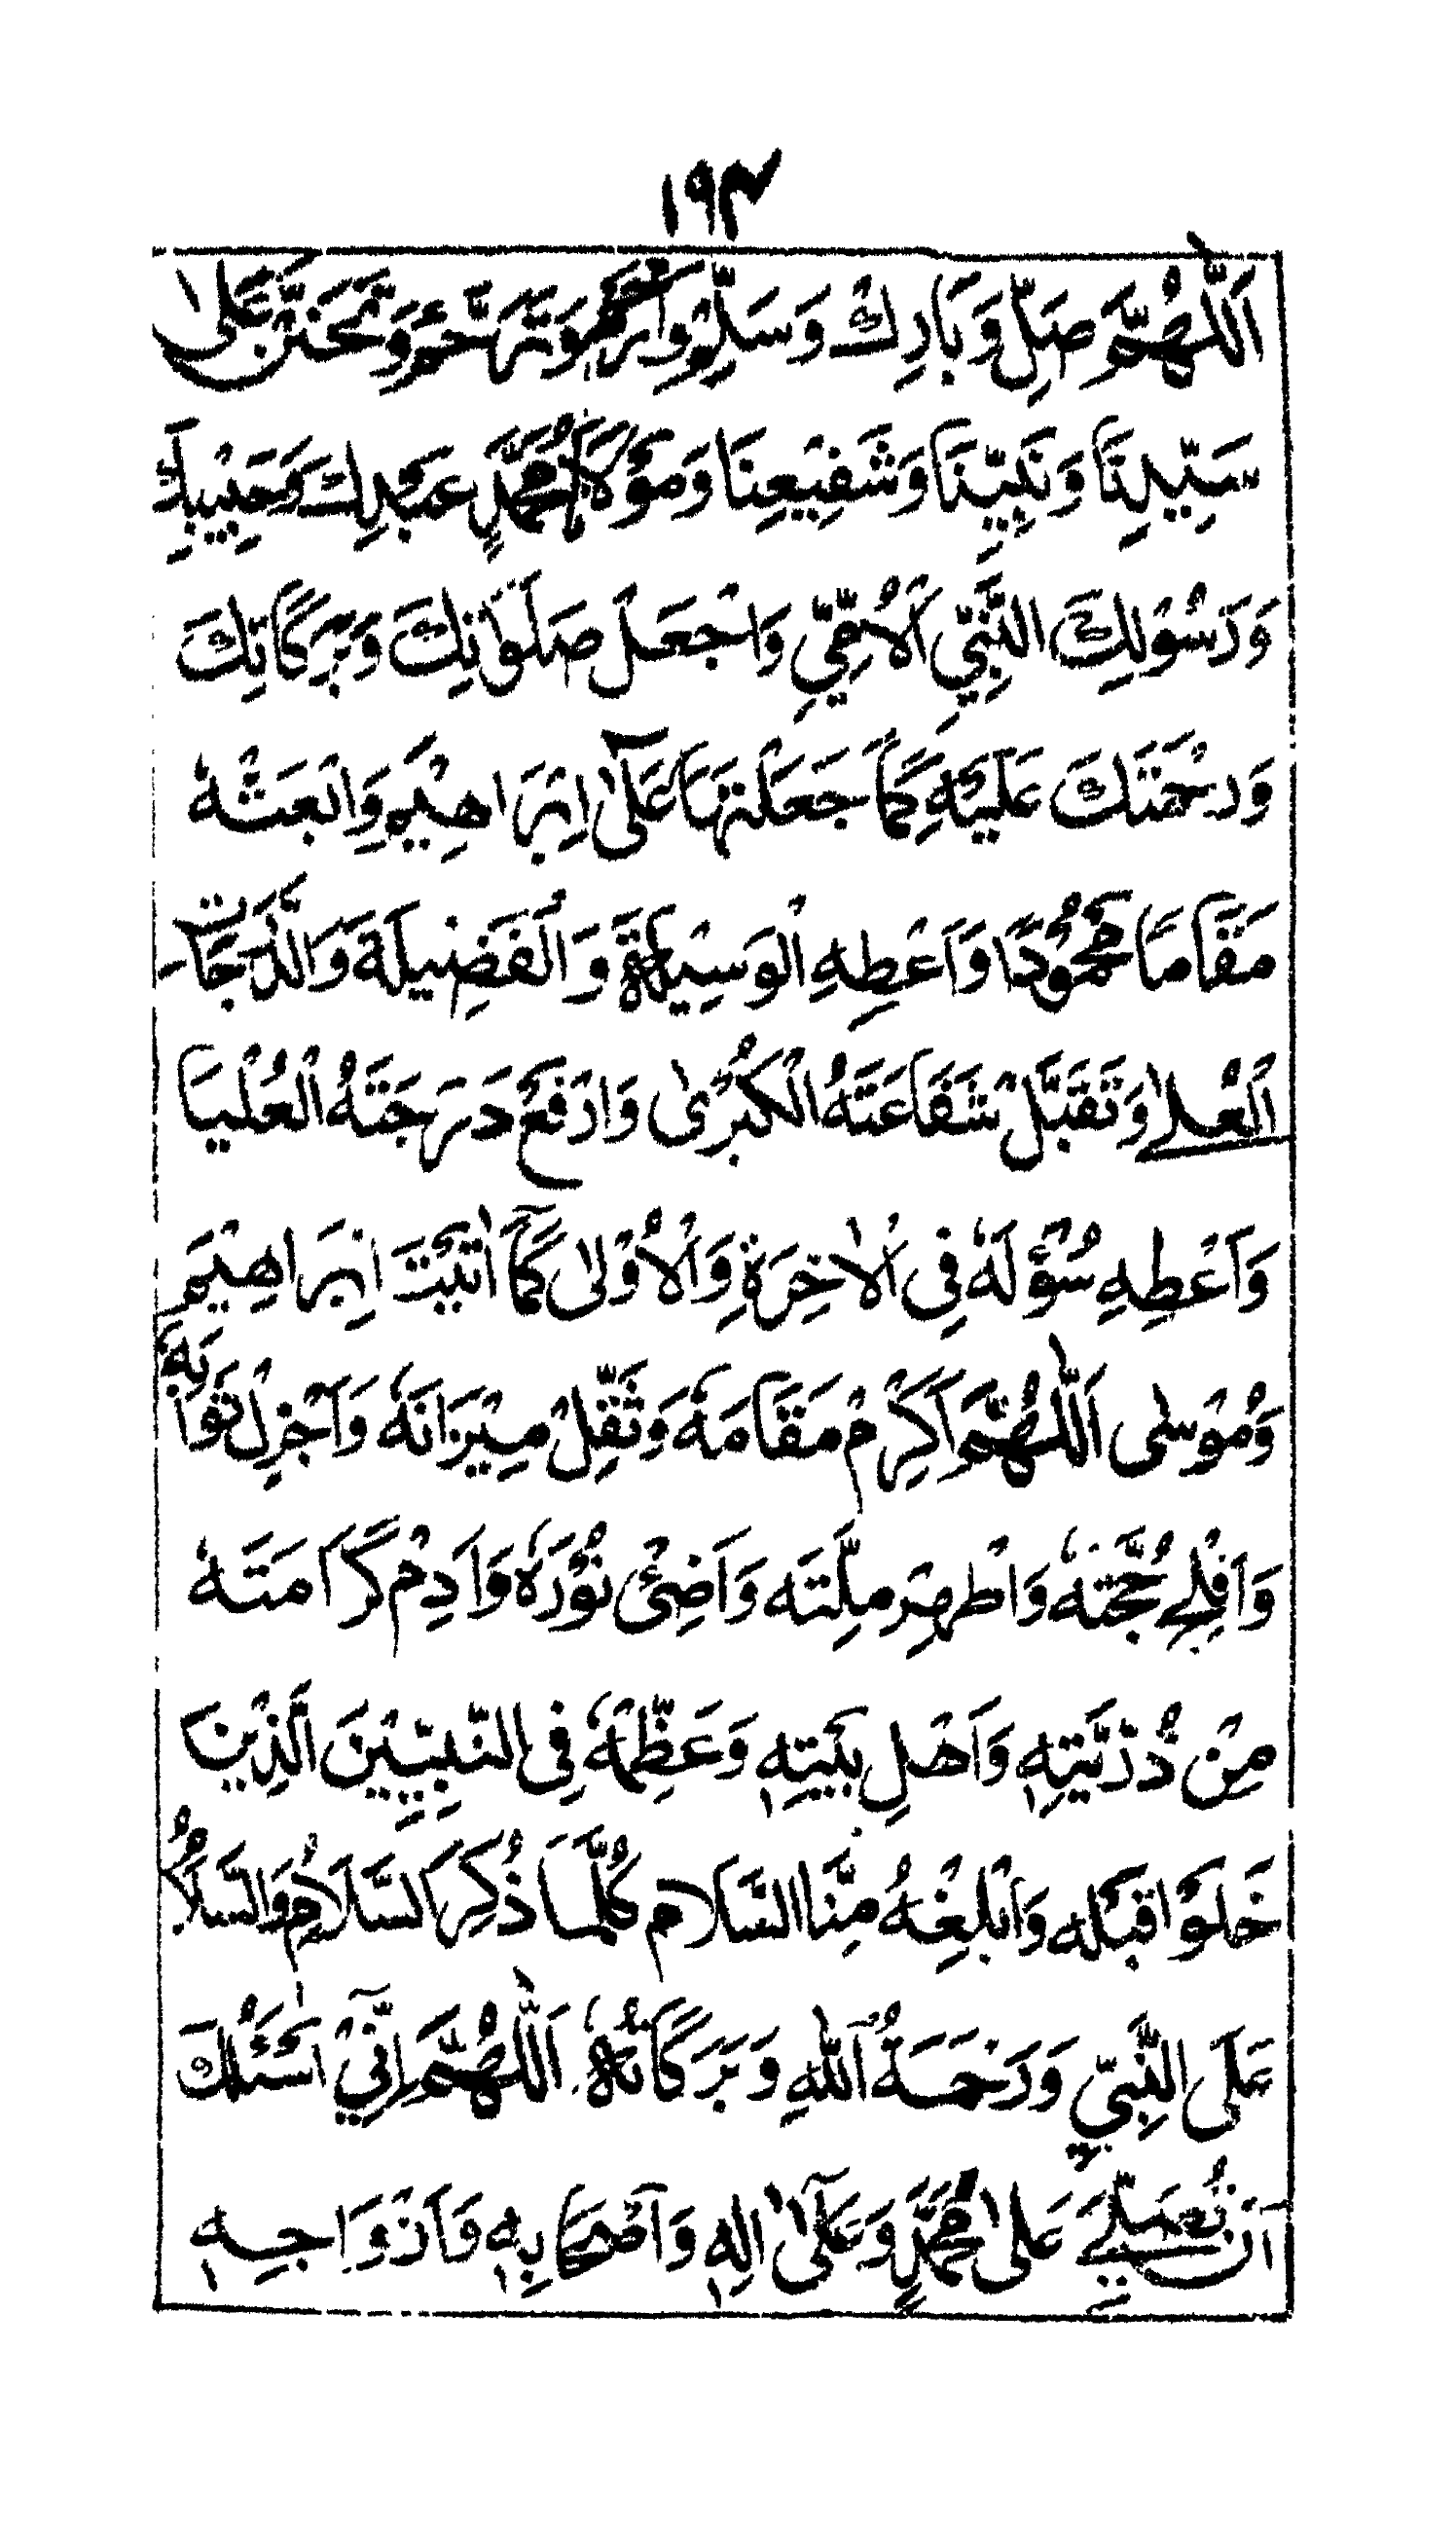 ١٩٣
اَللّٰهُمَّ صَلِّ وَبَارِكْ وَسَلِّمْ وَارْحَمْ وَتَرَحَّمْ وَتَحَنَّنْ عَلٰى
سَيِّدِنَا وَنَبِيِّنَا وَشَفِيْعِنَا وَمَوْلَانَا مُحَمَّدٍ عَبْدِكَ وَحَبِيْبِكَ
وَرَسُوْلِكَ النَّبِيِّ الْاُمِّيِّ وَاجْعَلْ صَلَوٰتِكَ وَبَرَكَاتِكَ
وَرَحْمَتَكَ عَلَيْهِ كَمَا جَعَلْتَهَا عَلٰٓى اِبْرَاهِيْمَ وَابْعَثْهُ
مَقَامًا مَّحْمُوْدًا وَاَعْطِهِ الْوَسِيْلَةَ وَالْفَضِيْلَةَ وَالدَّرَجَاتِ
الْعُلٰے وَتَقَبَّلْ شَفَاعَتَهُ الْكُبْرٰى وَارْفَعْ دَرَجَتَهُ الْعُلْيَا
وَاَعْطِهِ سُؤْلَهٗ فِى الْاٰخِرَةِ وَالْاُوْلٰى كَمَآ اٰتَيْتَ اِبْرَاهِيْمَ
وَمُوْسٰى اَللّٰهُمَّ اَكْرِمْ مَقَامَهٗ وَثَقِّلْ مِيْزَانَهٗ وَاَجْزِلْ ثَوَابَهٗ
وَاَفْلِجْ حُجَّتَهٗ وَاظْهِرْ مِلَّتَهٗ وَاَضِئْ نُوْرَهٗ وَاَدِمْ كَرَامَتَهٗ
مِنْ ذُرِّيَّتِهٖ وَاَهْلِ بَيْتِهٖ وَعَظِّمْهُ فِى النَّبِيِّيْنَ الَّذِيْنَ
خَلَوْا قَبْلَهٗ وَاَبْلِغْهُ مِنَّا السَّلَامَ كُلَّمَا ذُكِرَ السَّلَامُ وَالسَّلَامُ
عَلَى النَّبِيِّ وَرَحْمَةُ اللّٰهِ وَبَرَكَاتُهٗ اَللّٰهُمَّ اِنِّيْٓ اَسْئَلُكَ
اَنْ تُصَلِّيَ عَلٰى مُحَمَّدٍ وَعَلٰٓى اٰلِهٖ وَاَصْحَابِهٖ وَاَزْوَاجِهٖ